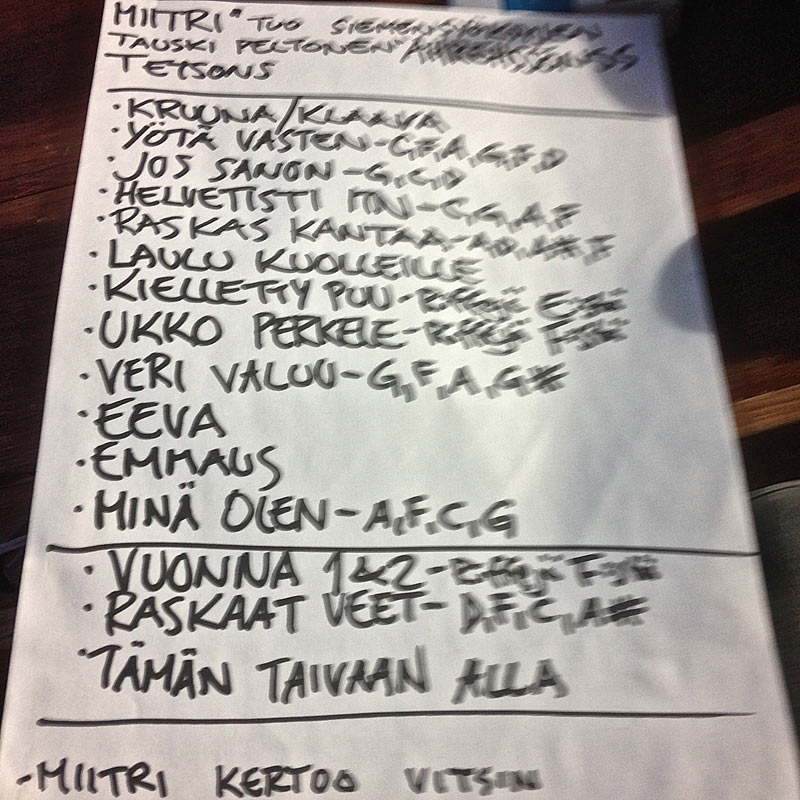 MIITRI "TUO SIEMENSYÖKSYINEN
TAUSKI PELTONEN"
TETSONS
·KRUUNA/KLAAVA
·YÖTÄ VASTEN-C,F,A,G,F,D
·JOS SANON-G,C,D
·HELVETISTI ITN-C,G,A,F
·RASKAS KANTAA-AD,A#,F
·LAULU KUOLLEILLE
·KIELLETTY PUU-Riffejä E:stä
·UKKO PERKELE-Riffejä F:stä
·VERI VALUU-G,F,A,G#
·EEVA
·EMMAUS
·MINÄ OLEN-A,F,C,G
·VUONNA 1&2-Riffejä F:stä
·RASKAAT VEET-D,F,C,A#
·TÄMÄN TAIVAAN ALLA
-MIITRI KERTOO VITSIN